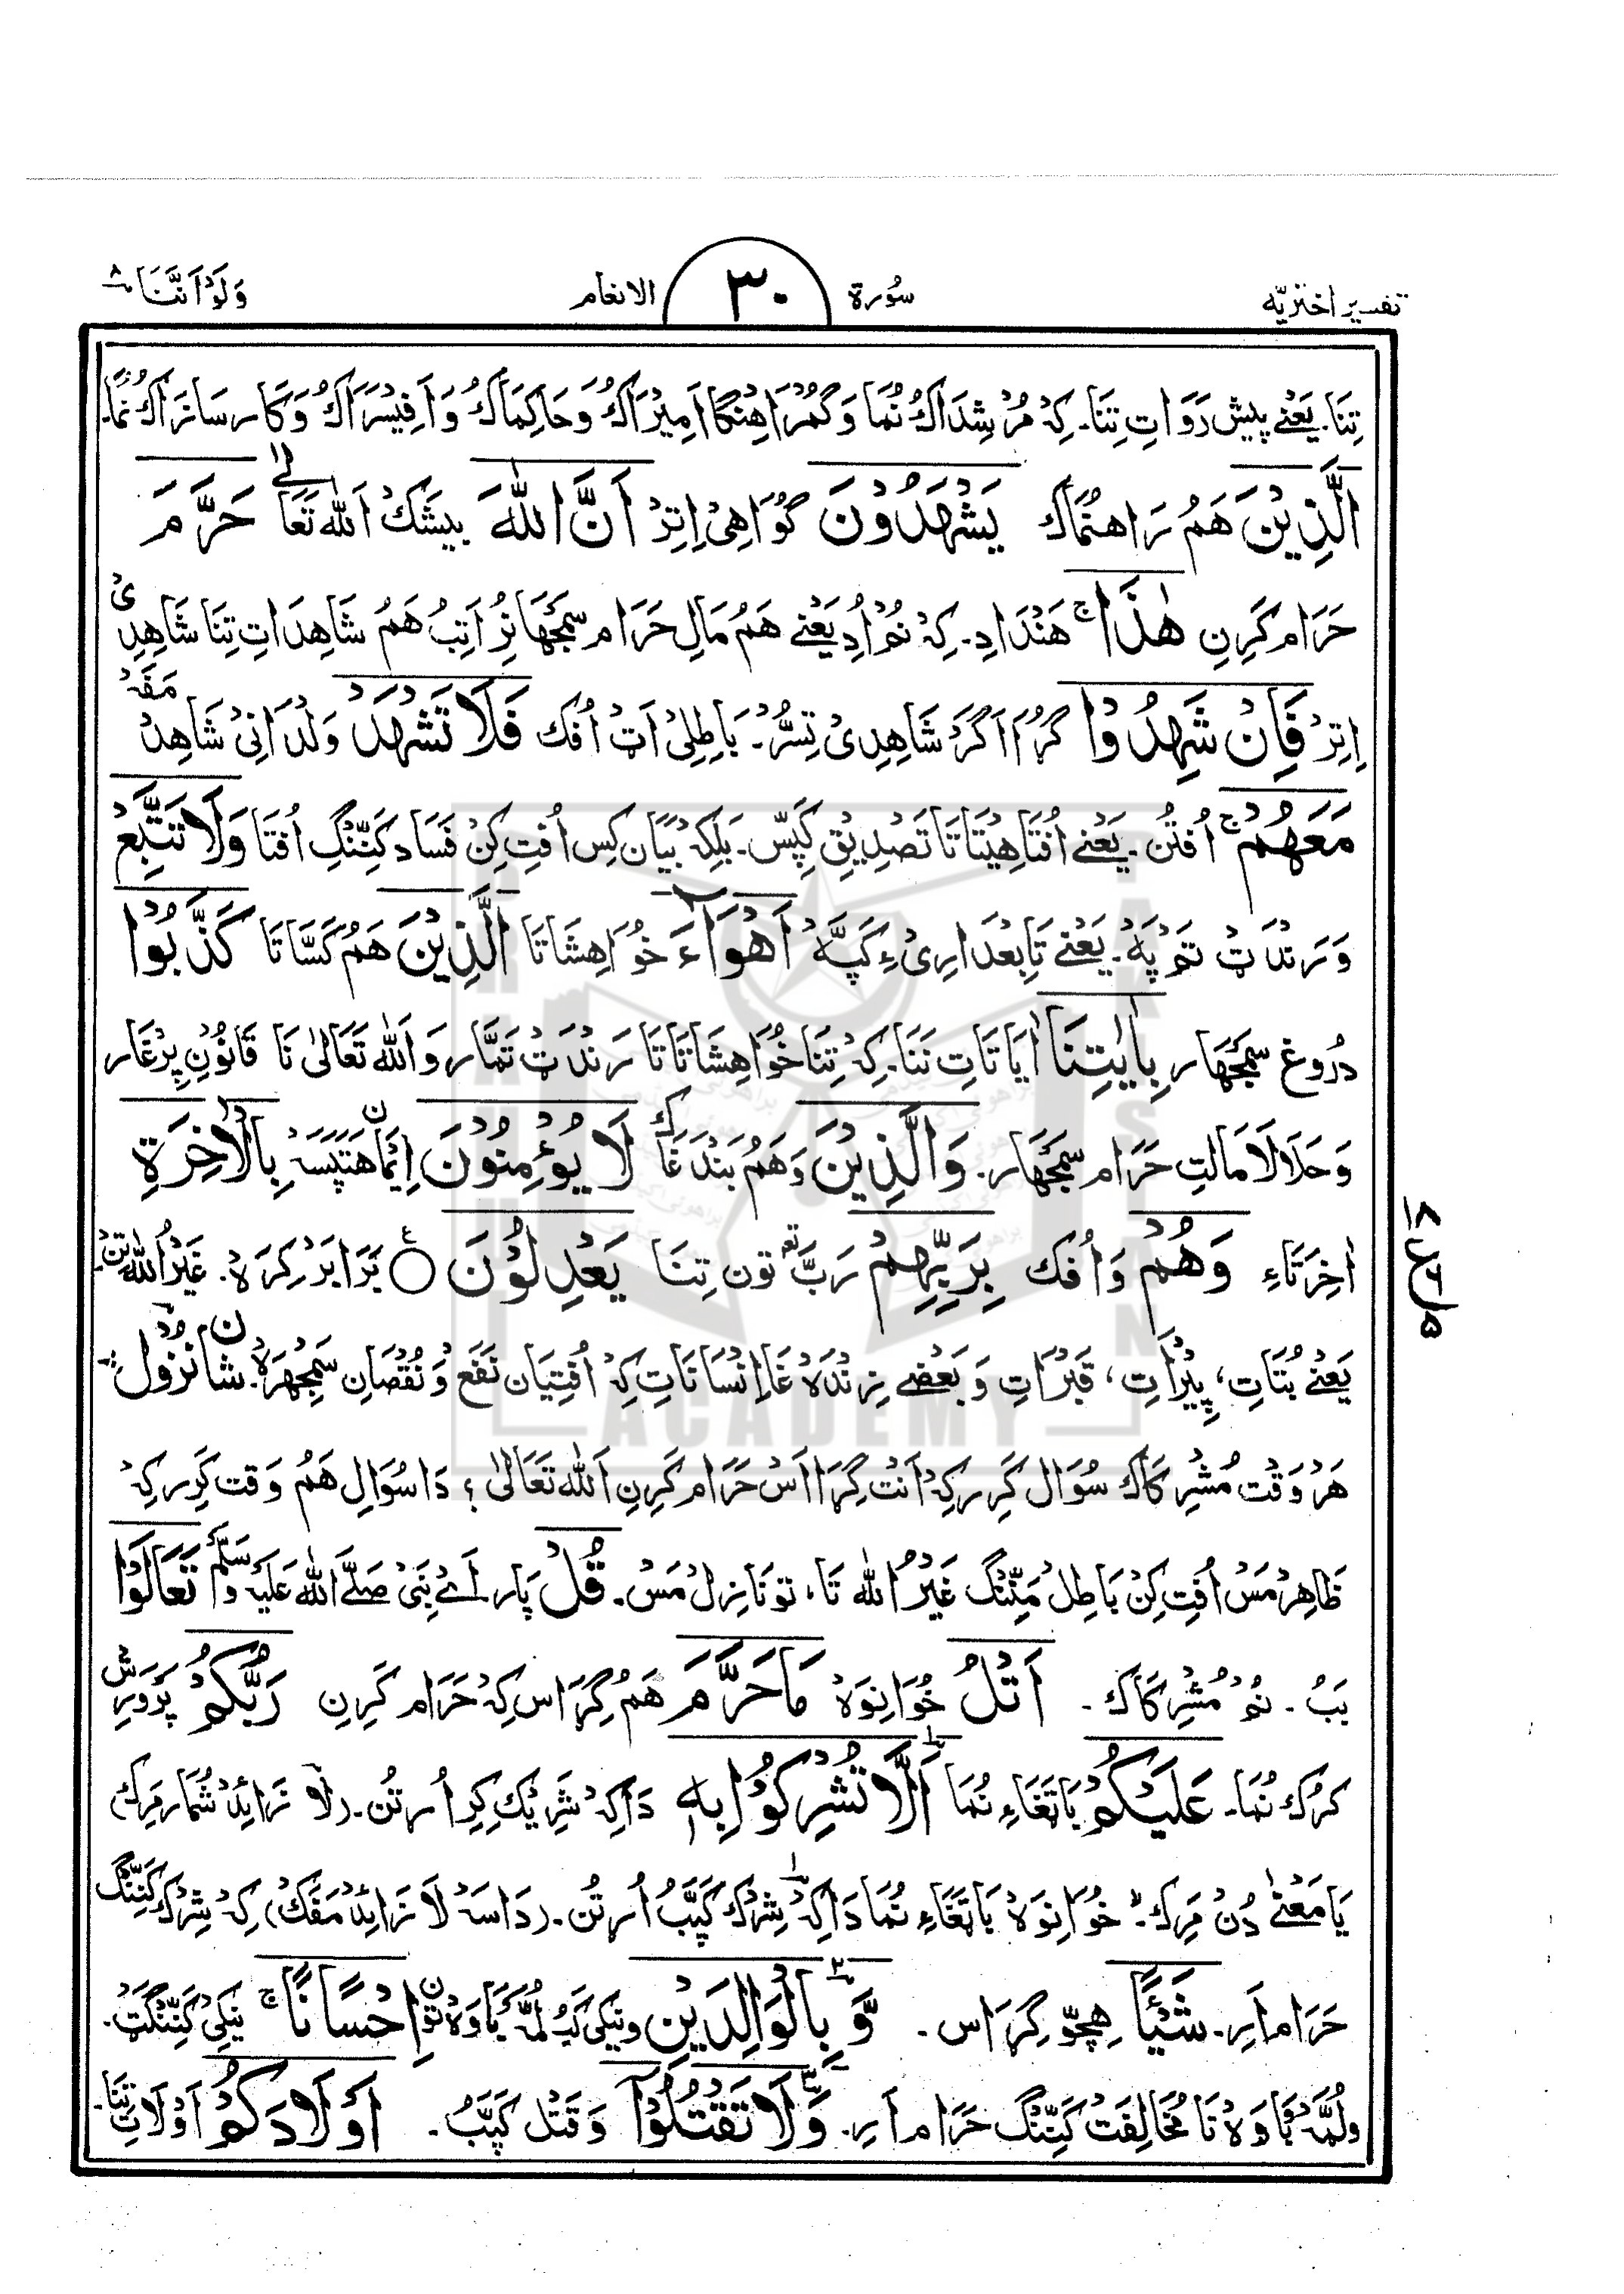 تفسیر اختریّه
سُورة
٣٠
الانعام
وَلَوْ اَنَّنَا ٨
تِنَا۔ یَعْنے پیش رَوَاتِ تِنَا۔ کِہ مُرْشِدَاکْ نُمَا وَ گُمْرَاهِنْگَا اَمِیْرَاکْ وَ حَاکِمَاکْ وَ اَفِیْسَرَاکْ وَ کَارسَازَاکْ نُمَا۔
الَّذِیْنَ هَمُ رَاهنُمَاک یَشْهَدُوْنَ گُوَاهِیْ اِتِرْ اَنَّ اللّٰهَ بیشَکْ اَللّٰه تَعَالٰے حَرَّمَ
حَرَام کَرِنِ هٰذَا ج هَنْدَادِ۔ کِہ نُمْ اُدِ یَعْنے هَمُ مَالِ حَرَام سَمْجَھَارِ اَتِبُ هَمُ شَاهِدَاتِ تِنَا شَاهِدِیْ
اِتِرْ فَاِنْ شَهِدُوْا گُرَا اَگَرْ شَاهِدِیْ تِسُّرْ۔ بَاطِلِیْ اَتْ اُفک فَلَا تَشْهَدْ وَلْدَا نِیْ شَاهِدْ مَفَہْ
مَعَهُمْ ج اُفتُن۔ یَعْنے اُفتَا هِیْتَاتَا تَصْدِیْق کَپَّس۔ بَلکِہ بَیَان کِس اُفتِ کِنْ فَسَاد کَنِّنْگِ اُفتَا وَلَا تَتَّبِعْ
وَ رَنْدَتْ تَمْ پَہْ۔ یَعْنے تَابِعْدَارِیْ ءِ کَپَّہْ اَهْوَآءَ خُوَاهِشَاتَا الَّذِیْنَ هَمُ کَسَّاتَا کَذَّبُوْا
دُرُوغ سَمْجَھَار بِاٰیٰتِنَا اٰیَاتَاتِ نَنَا۔ کِہ تِنَا خُوَاهِشَاتَاتَا رَنْدَتْ تَمَّار وَ اَللّٰه تَعَالٰی نَا قَانُوْنِ یِرْغَار
وَ حَلَالَا مَالتِ حَرَام سَمْجَھَار۔ وَالَّذِیْنَ وَهَمُ بَنْدَغَاک لَا یُؤْمِنُوْنَ اِیْمَان هَتِپَسَہْ بِالْاٰخِرَةِ
اٰخِرَتَاءِ وَهُمْ وَ اُفک بِرَبِّهِمْ رَبّ تع تون تِنَا یَعْدِلُوْنَ ○ بَرَابَرْ کِرَہْ۔ غَیْرُاللّٰهِ تِنْ۔
یَعْنے بُتَاتِ، پِیْرَاتِ، قَبْرَاتِ وَ بَعْضے زِنْدَہ غَا اِنْسَانَاتِ کِہ اُفتِیَان نَفَع وَ نُقْصَان سَمْجَھرَہْ۔ شان نزول
هَرْ وَقْت مُشْرِکَاک سُوَال کَرِر کِہ اَنْت گِرَا اَس حَرَام کَرِنِ اَللّٰه تَعَالٰی ؟ دَا سُوَالِ هَمُ وَقت کَرِر کِہْ
ظَاهِرْ مَسْ اُفتِ کِنْ بَاطِلْ مَنِّنْگ غَیْرُ اللّٰه تَا، تو نَازِلْ مَسْ۔ قُلْ پَار اَےْ نَبِیْ صَلَّی اللّٰهُ عَلَیْہِ وَسَلَّم تَعَالَوْا
بَبُ۔ نُمْ مُشْرِکَاک۔ اَتْلُ خُوَانِوَہْ مَا حَرَّمَ هَمُ گِرَاس کِہْ حَرَام کَرِن رَبُّکُمْ پَرْوَرِش
کَرُک نُمَا۔ عَلَیْکُمْ بَاتَغَاءِ نُمَا اَلَّا تُشْرِکُوْا بِهٖ دَاکِہْ شَرِیْک کِر اُرتُن۔ (لَا زَائِدْ شُمَار مَرِکْ)
یَا مَعْنے دُنْ مَرِک۔ خُوَانِوَہْ بَاتَغَاءِ نُمَا دَاکِہْ شِرْک کَپَّبُ اُرتُن۔ (دَاسَہْ لَا زَائِدْ مَفَکْ) کِہْ شِرْک کَنِّنْگ
حَرَام اَرِ۔ شَیْـًٔا هِچّو گِرَاس۔ وَّ بِالْوَالِدَیْنِ وَنیکی کَبْ لُمَّہْ بَاوَہْ تُون اِحْسَانًا ج نیکِیْ کَنِّنْگَتْ۔
وَلُمَّہْ بَاوَہْ نَا مُخَالِفَتْ کَنِّنْگ حَرَام اَرِ۔ وَلَا تَقْتُلُوْٓا وَ قَتْل کَپَّبُ۔ اَوْلَادَکُمْ اَوْلَاتِ تِنَا۔